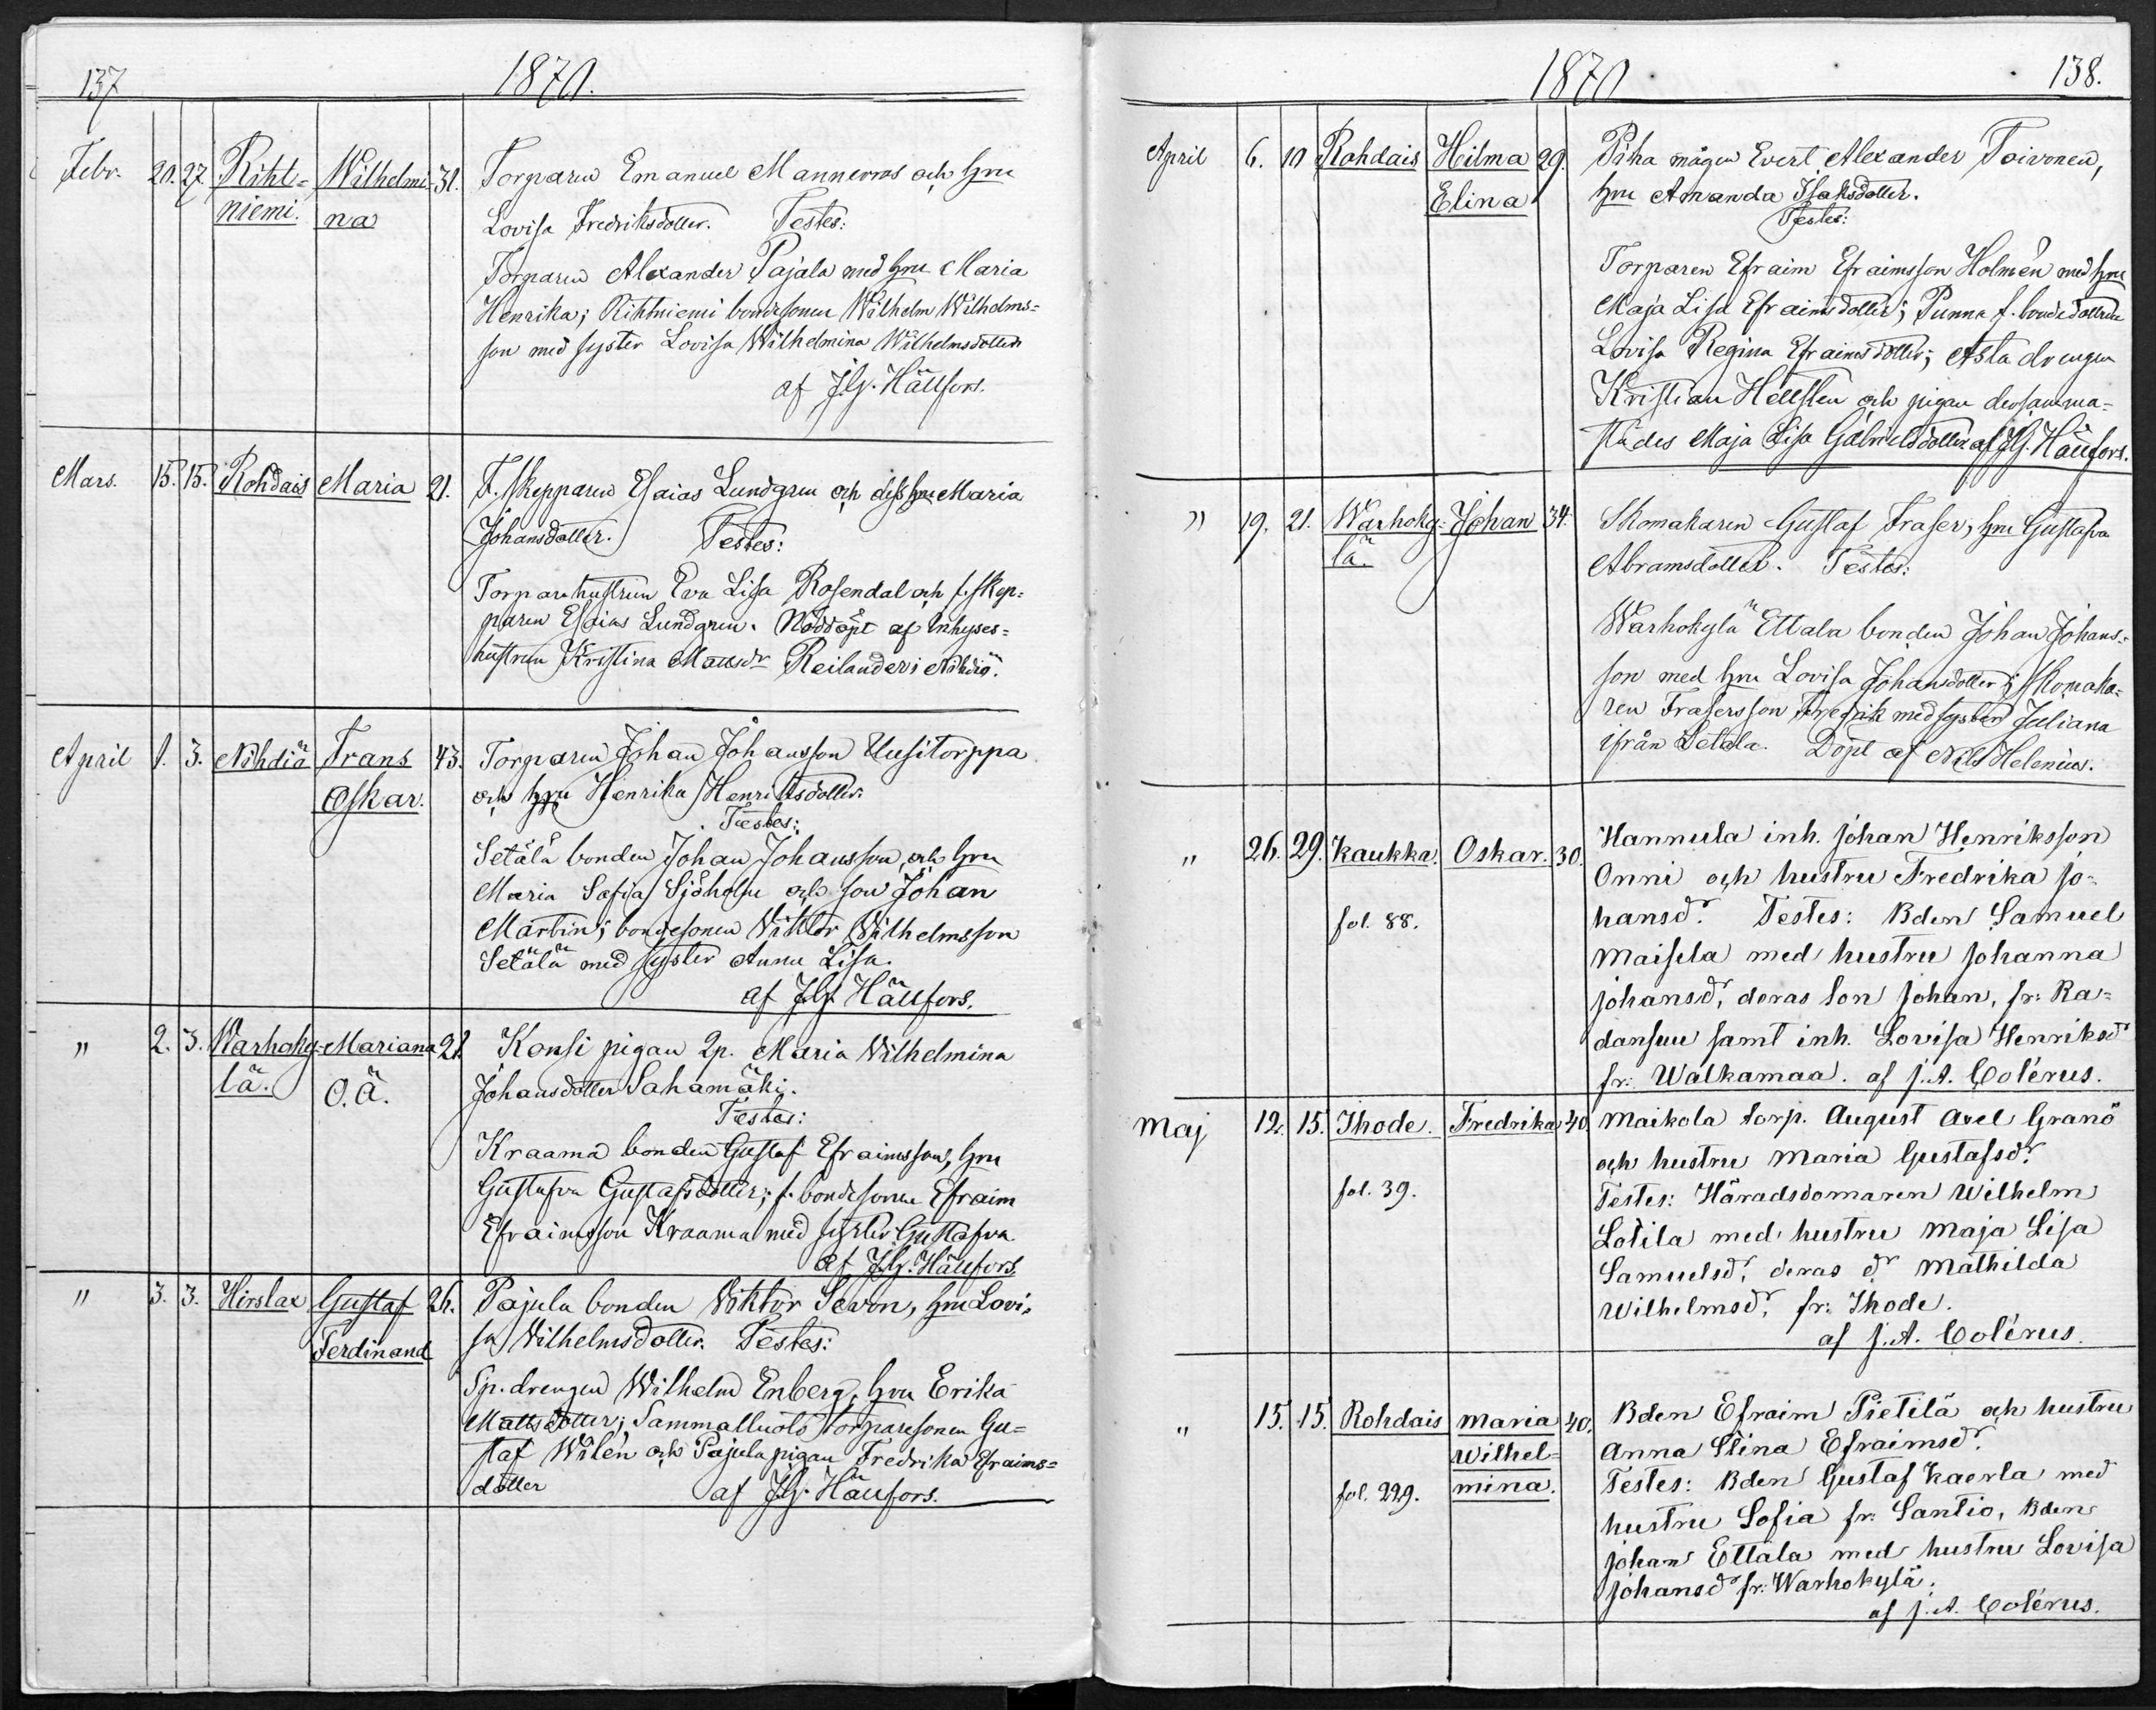 137
1870.
Febr. 20. 27. Riht= Wilhelmi- 31. Torparen Emanuel Mannerros och hru
niemi. na Lovisa Fredriksdotter. Testes:
Torparen Alexander Pajala med hru Maria
Henrika; Rihtniemi bondesonen Wilhelm Wilhelms=
son med syster Lovisa Wilhelmina Wilhelmsdotter
af J.G. Hällfors.
Mars. 15. 15. Rohdais Maria 21. F. skepparen Esaias Lundgren och dess hru Maria
Johansdotter. Testes:
Torparehustrun Eva Lisa Rosendal och f. skep=
paren Esaias Lundgren. Nöddöpt af Inhyses=
hustrun Kristina Mattsdr Reilander i Nihdiö.
April 1. 3. Nihdiö Frans 43. Torparen Johan Johansson Uusitorppa
Oskar. och hru Henrika Henriksdotter.
Testes:
Setälä bonden Johan Johansson och hru
Maria Sofia Sjöholm och son Johan
Martin; bondesonen Viktor Wilhelmsson
Setälä med syster Anna Lisa.
af J.G. Hällfors.
" 2. 3. Warhoky- Mariana 21. Konsi pigan Maria Wilhelmina
lä. O.Ä. Johansdotter Sahamäki.
Testes:
Kraama bonden Gustaf Efraimsson, hru
Gustafva Gustafsdotter; f. bondesonen Efraim
Efraimsson Kraama med syster Gustafva
af J.G. Hällfors.
" 3. 3. Hirslax Gustaf 26. Pajula bonden Viktor Sevon, hru Lovi=
Ferdinand sa Wilhelmsdotter. Testes:
Sp. drengen Wilhelm Enberg, hru Erika
Mattsdotter; Sammalluoto torparesonen Gu=
staf Wilén och Pajula pigan Fredrika Efraims=
dotter af J.G. Hällfors.
1870
138.
April 6. 10 Rohdais Hilma 29. Piha mågen Evert Alexander Toivonen,
Elina hru Amanda Isaksdotter.
Testes:
Torparen Efraim Efraimsson Holmén med hru
Maja Lisa Efraimsdotter; Punna f. bondedottren
Lovisa Regina Efraimsdotter; Asta drengen
Kristian Hellsten och pigan dersamma=
städes Maja Lisa Gabrielsdotter. af J.G. Hällfors.
" 19. 21. Warhoky- Johan 34. Skomakaren Gustaf Fraser, hru Gustafva
lä. Abramsdotter. Testes:
Warhokylä Ettala bonden Johan Johans=
son med hru Lovisa Johansdotter; skomaka=
ren Frasersson Fredrik med syster Juliana
ifrån Setälä. Döpt af Nils Helenius.
" 26. 29. Kaukka. Oskar. 30. Hannula inh. Johan Henriksson
Onni och hustru Fredrika Jo=
fol. 88. hansdr. Testes: Bden Samuel
Maisela med hustru Johanna
Johansdr, deras son Johan, fr: Ra=
dansuu samt inh. Lovisa Henriksdr
fr: Walkamaa. af J.A. Colérus.
Maj 12. 15. Ihode. Fredrika 40. Maikola torp. August Axel Granö
och hustru Maria Gustafsdr.
fol. 39. Testes: Häradsdomaren Wilhelm
Lotila med hustru Maja Lisa
Samuelsdr, deras dr Mathilda
Wilhelmsdr, fr: Ihode.
af J.A. Colérus.
" 15. 15. Rohdais Maria 40. Bden Efraim Pietilä och hustru
Wilhel= Anna Stina Efraimsdr.
fol. 229. mina. Testes: Bden Gustaf Kaerla med
hustru Sofia fr: Santio, Bden
Johan Ettala med hustru Lovisa
Johansdr fr: Warhokylä.
af J.A. Colérus.